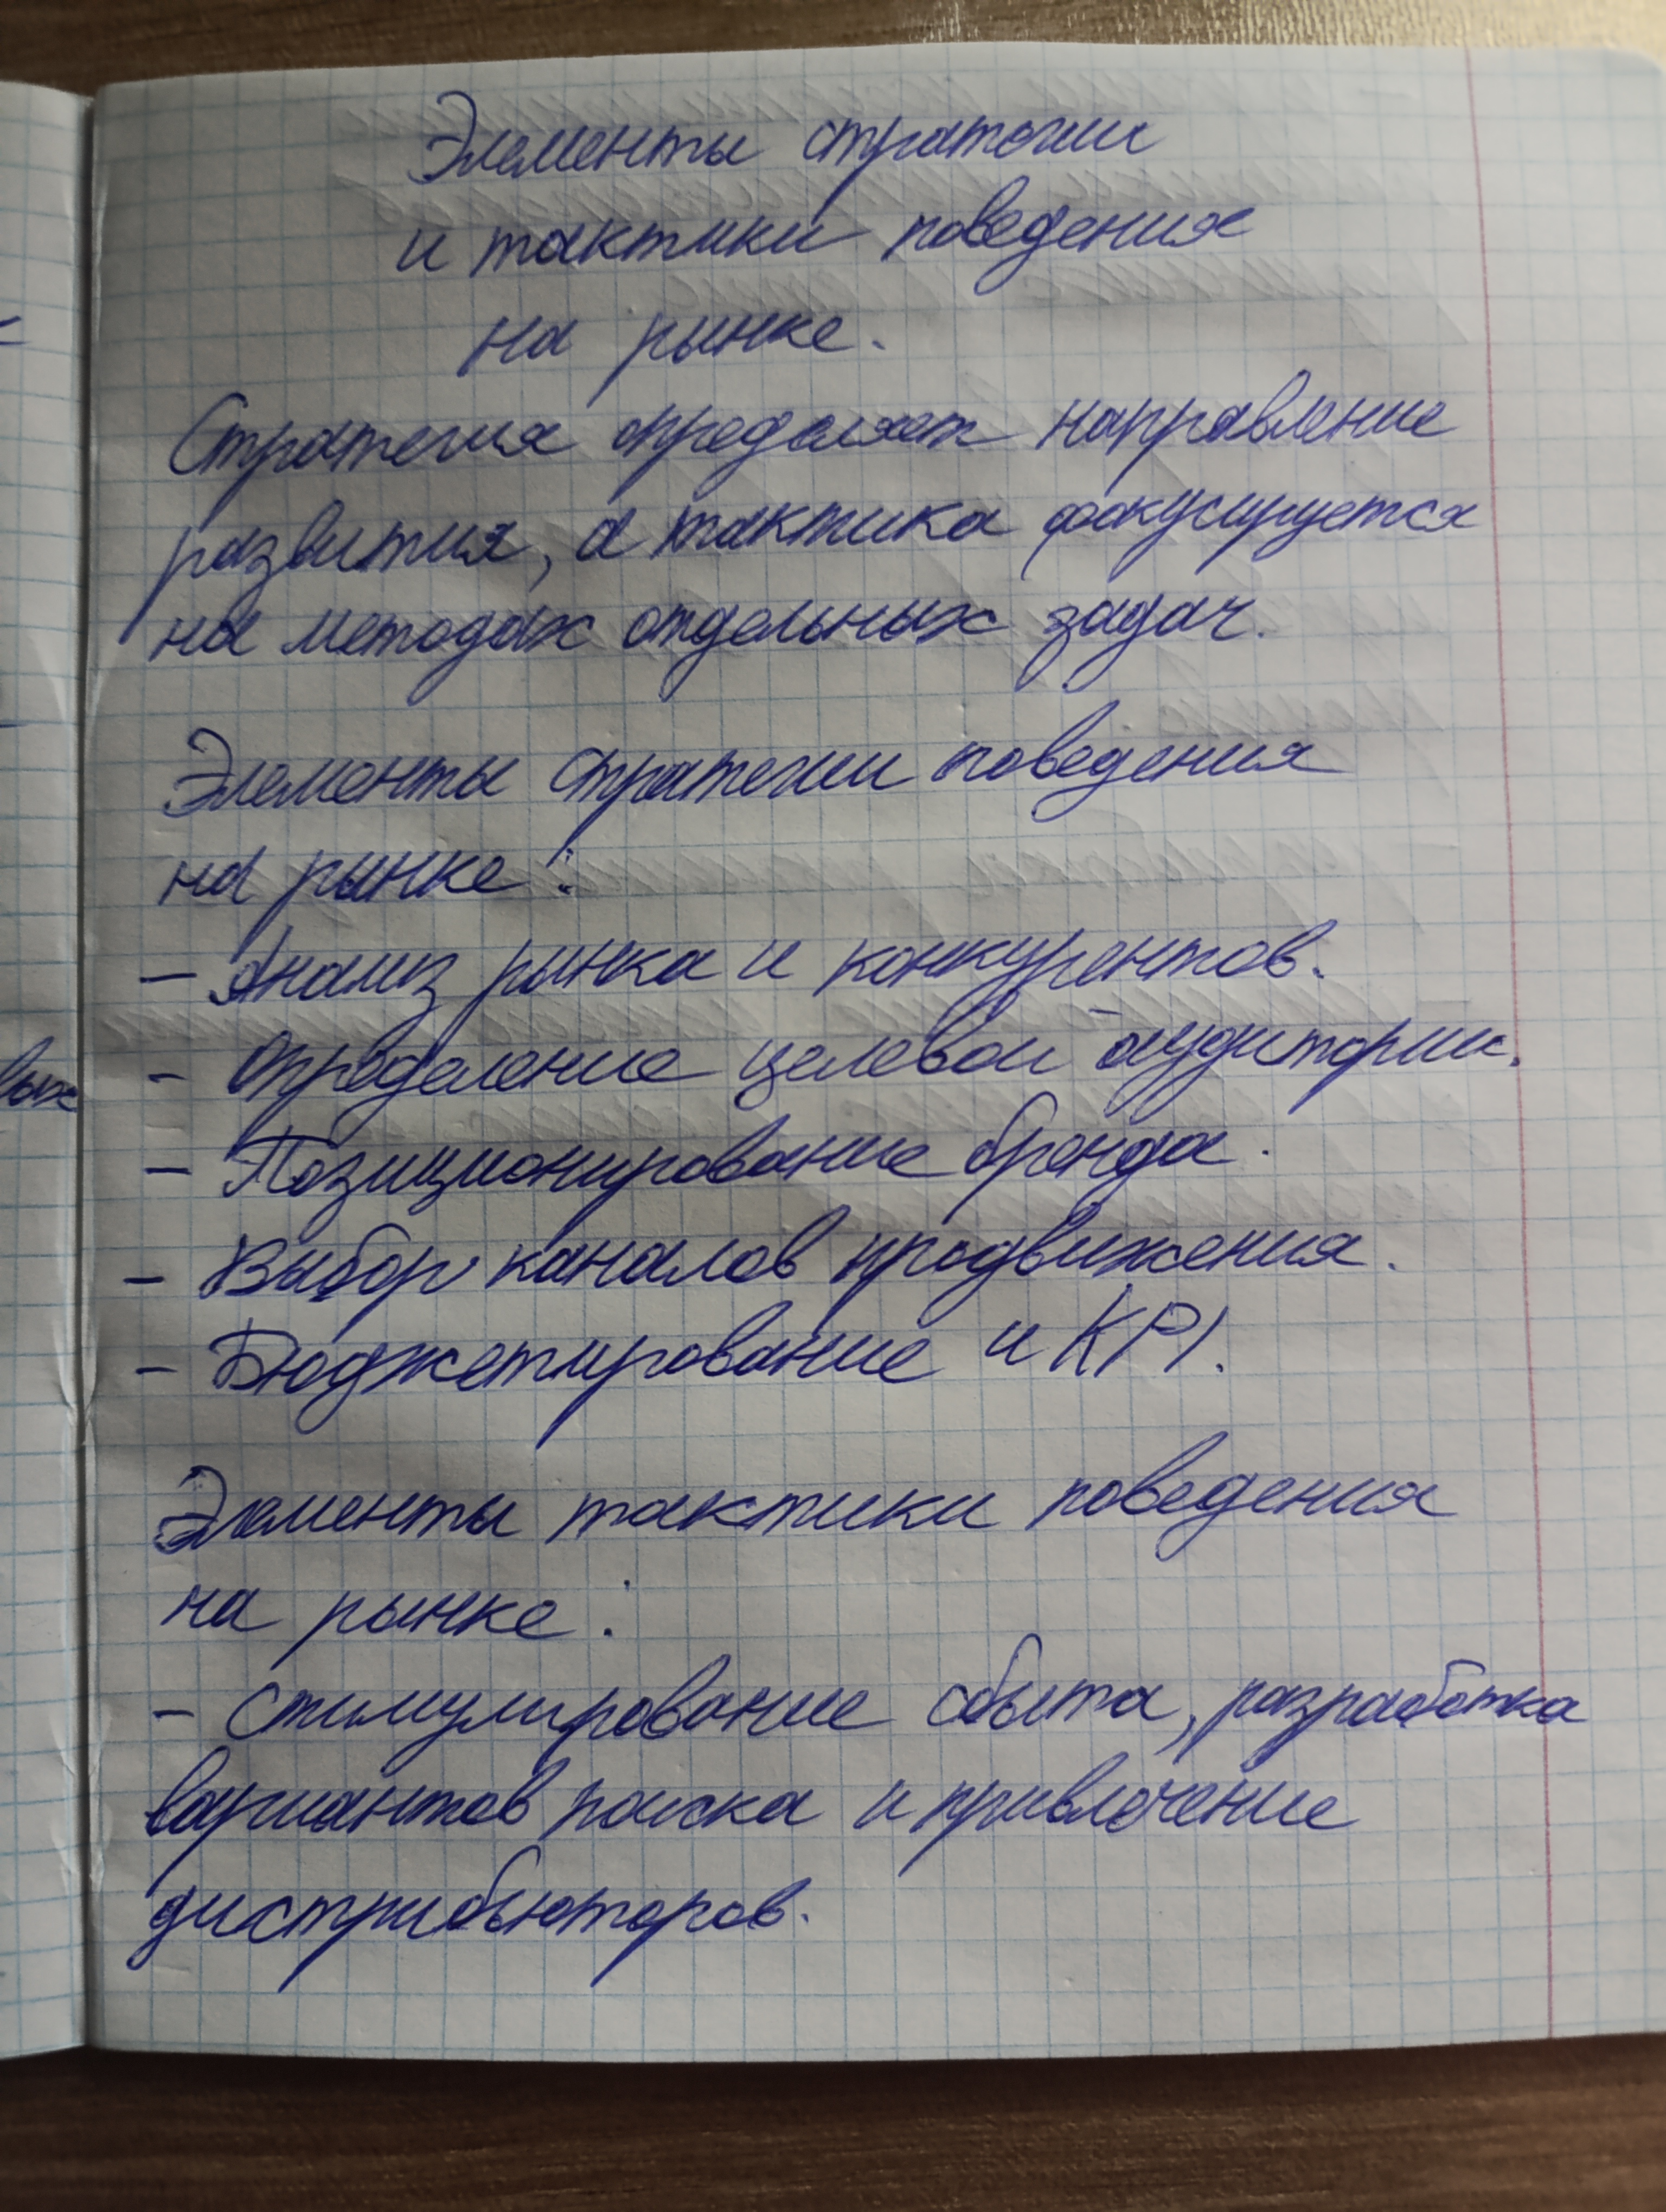 Элементы стратегии
и тактики поведения
на рынке.
Стратегия определяет направление
развития, а тактика фокусируется
на методах отдельных задач.
Элементы стратегии поведения
на рынке:
- Анализ рынка и конкурентов.
- Определение целевой аудитории.
- Позиционирование бренда.
- Выбор каналов продвижения.
- Бюджетирование и KPI.
Элементы тактики поведения
на рынке:
- Стимулирование сбыта, разработка
вариантов поиска и привлечение
дистрибьюторов.